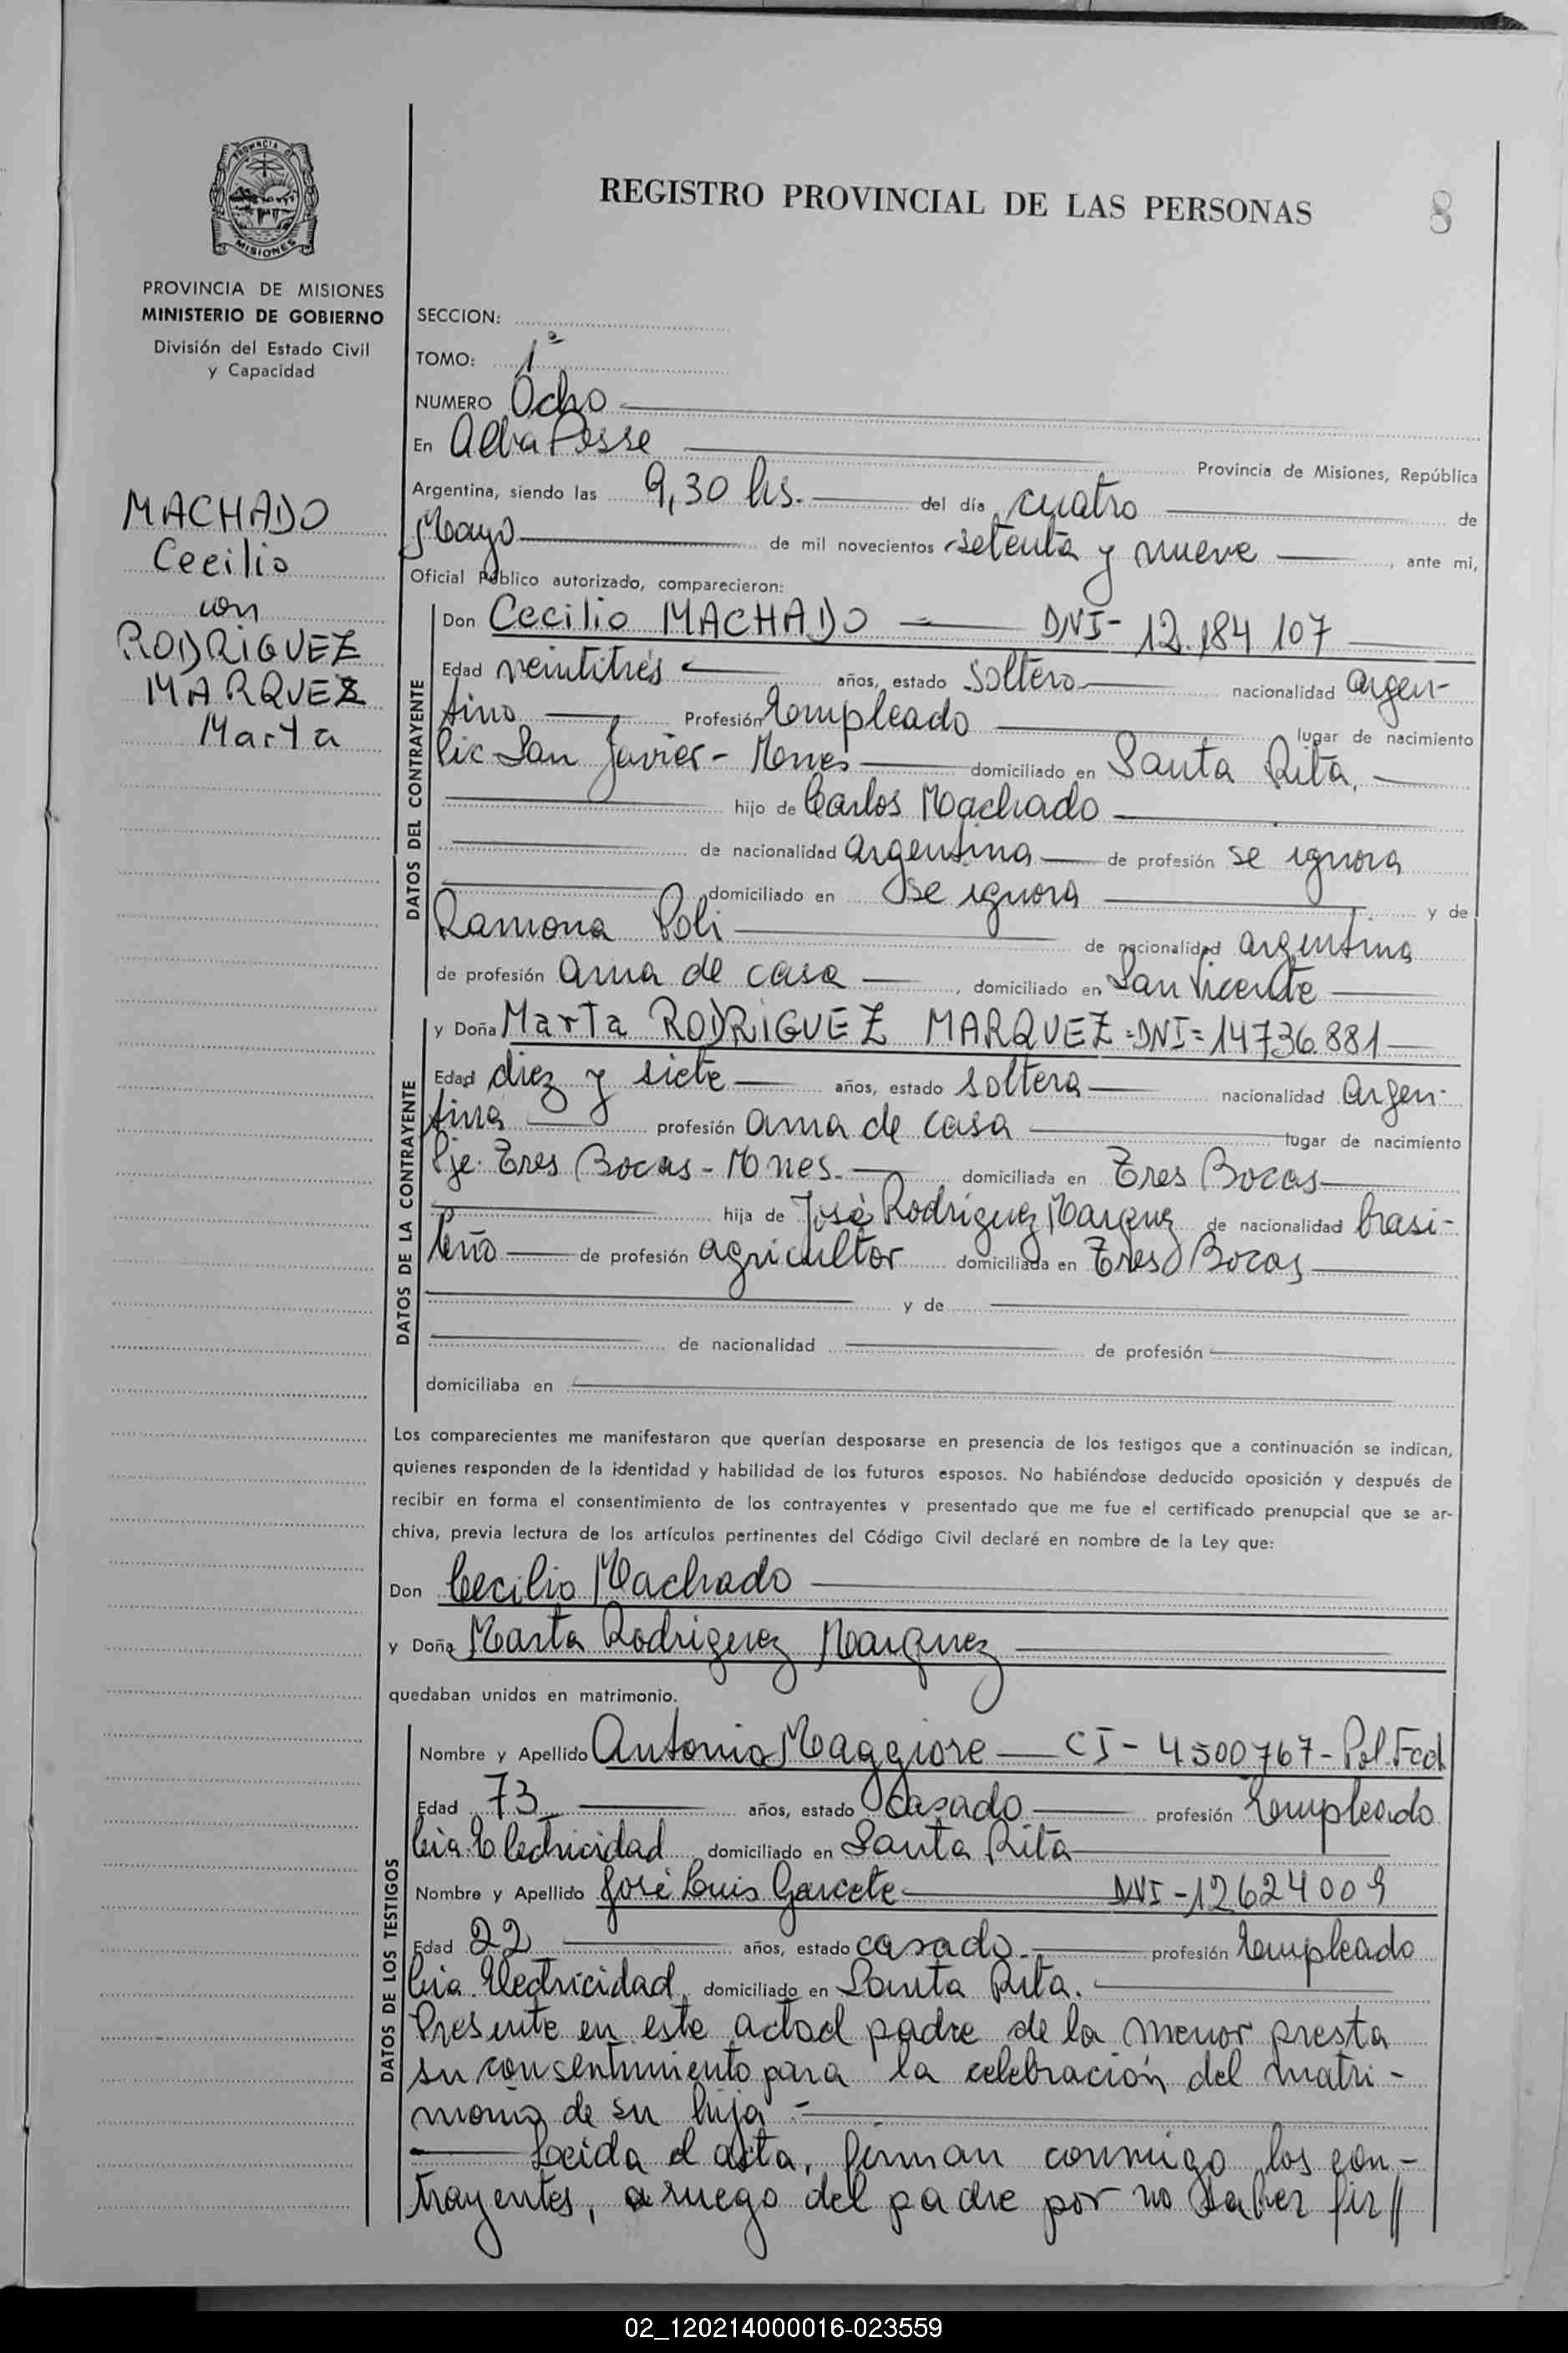 PROVINCIA DE
MISIONES
PROVINCIA DE MISIONES
MINISTERIO DE GOBIERNO
División del Estado Civil
y Capacidad
MACHADO
Cecilio
con
RODRIGUEZ
MARQUEZ
Marta
REGISTRO PROVINCIAL DE LAS PERSONAS
8
SECCION:
TOMO: 1º
NUMERO Ocho
En Alba Posse Provincia de Misiones, República
Argentina, siendo las 9,30 hs. del día cuatro de
Mayo de mil novecientos setenta y nueve, ante mi,
Oficial Público autorizado, comparecieron:
DATOS DEL CONTRAYENTE
Don Cecilio MACHADO DNI- 12.184 107
Edad veintitrés años, estado soltero nacionalidad argen-
tino Profesión Empleado lugar de nacimiento
Pic San Javier - Mnes domiciliado en Santa Rita,
hijo de Carlos Machado
de nacionalidad argentina de profesión se ignora
domiciliado en se ignora y de
Ramona Poli de nacionalidad argentina
de profesión ama de casa, domiciliado en San Vicente
DATOS DE LA CONTRAYENTE
y Doña Marta RODRIGUEZ MARQUEZ =DNI= 14736.881
Edad diez y siete años, estado soltera nacionalidad Argen-
tina profesión ama de casa lugar de nacimiento
Pje. Tres Bocas - Mnes. domiciliada en Tres Bocas
hija de José Rodriguez Marquez de nacionalidad brasi-
leño de profesión agricultor domiciliada en Tres Bocas
y de
de nacionalidad de profesión
domiciliaba en
Los comparecientes me manifestaron que querían desposarse en presencia de los testigos que a continuación se indican,
quienes responden de la identidad y habilidad de los futuros esposos. No habiéndose deducido oposición y después de
recibir en forma el consentimiento de los contrayentes y presentado que me fue el certificado prenupcial que se ar-
chiva, previa lectura de los artículos pertinentes del Código Civil declaré en nombre de la Ley que:
Don Cecilio Machado
y Doña Marta Rodriguez Marquez
quedaban unidos en matrimonio.
DATOS DE LOS TESTIGOS
Nombre y Apellido Antonio Maggiore CI- 4500767- Pol. Fed
Edad 73 años, estado Casado profesión Empleado
Cia. Electricidad domiciliado en Santa Rita
Nombre y Apellido José Luis Garcete DNI-12624009
Edad 22 años, estado casado. profesión Empleado
Cia. Electricidad domiciliado en Santa Rita.
Presente en este acto el padre de la menor presta
su consentimiento para la celebración del matri-
monio de su hija.-
Leida el acta, firman conmigo los con-
trayentes, a ruego del padre por no saber fir//
02_120214000016-023559